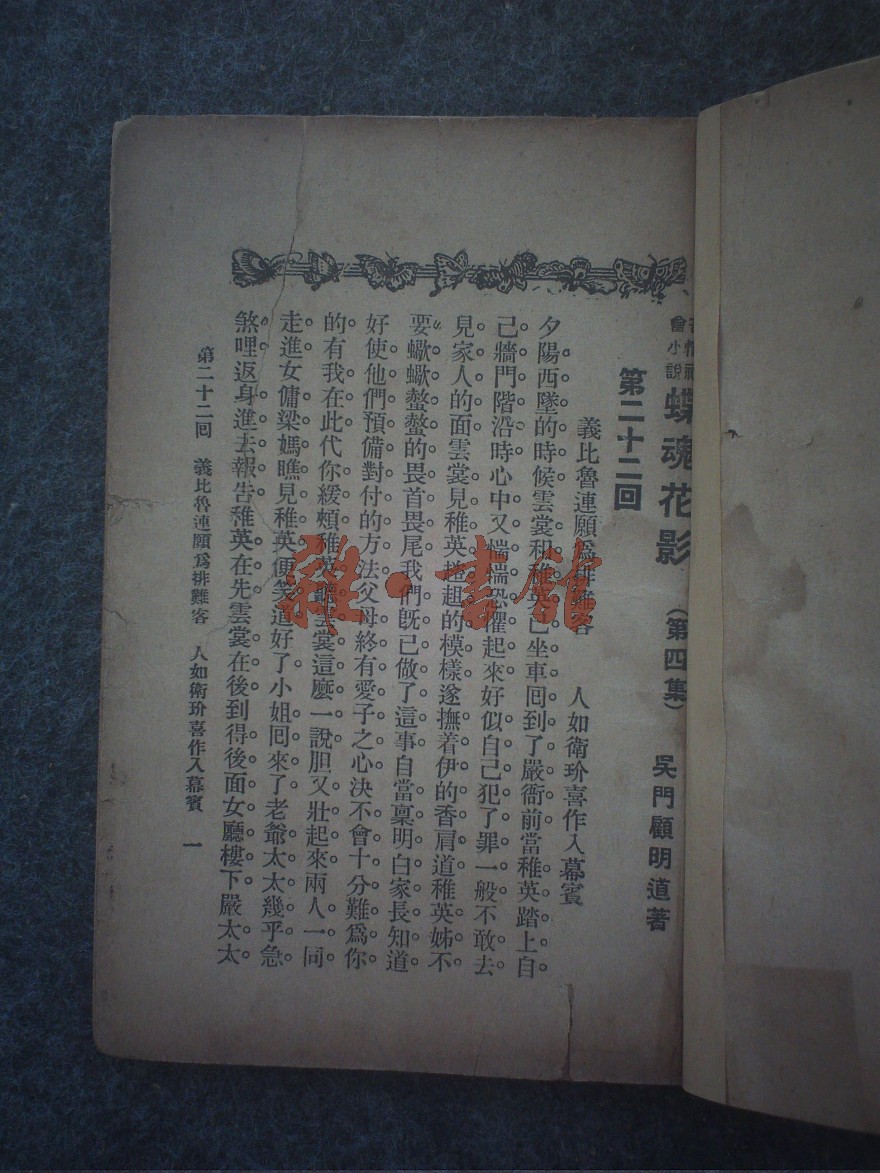 會小說 蝶魂花影 (第四集) 吳門顧明道著
第二十二回
義比魯連願爲排難客 人如衛玠喜作入幕賓
夕陽西墜的時候雲裳和稚英已坐車囘到了嚴衙前當稚英踏上自
己牆門階沿時心中又惴惴恐懼起來好似自己犯了罪一般不敢去
見家人的面雲裳見稚英趑趄的模樣遂撫着伊的香肩道稚英姊不
要蠍蠍螫螫的畏首畏尾我們旣已做了這事自當稟明白家長知道
好使他們預備對付的方法父母終有愛子之心決不會十分難爲你
的有我在此代你緩頰稚英聽雲裳這麼一說胆又壯起來兩人一同
走進女傭梁媽瞧見稚英便笑道好了小姐囘來了老爺太太幾乎急
煞哩返身進去報吿稚英在先雲裳在後到得後面女廳樓下嚴太太
第二十二囘 義比魯連願爲排難客 人如衛玠喜作入幕賓 一
雜·書館